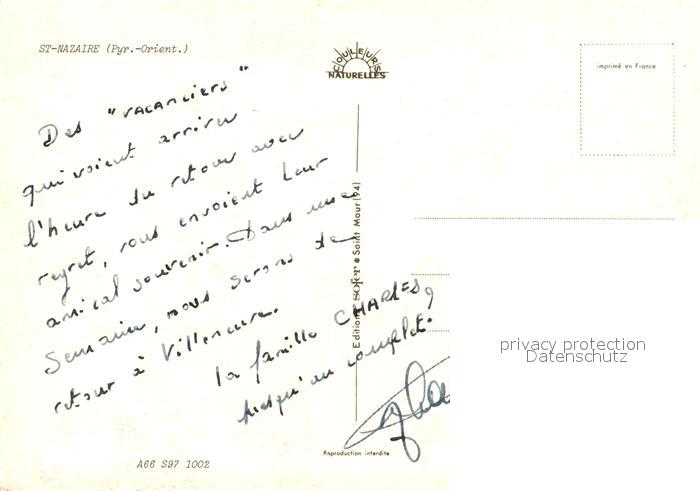 ST-NAZAIRE (Pyr.-Orient.)
COULEURS
NATURELLES
imprimé en France
Des "vacanciers"
qui voient arriver
l'heure du retour avec
regret, vous envoient leur
amical souvenir. Dans une
Semaine, nous serons de
retour à Villeneuve.
la famille CHARLES,
presqu'au complet.
Editions SOFER * Saint Maur (94)
privacy protection
Datenschutz
Reproduction interdite
A66 S97 1002